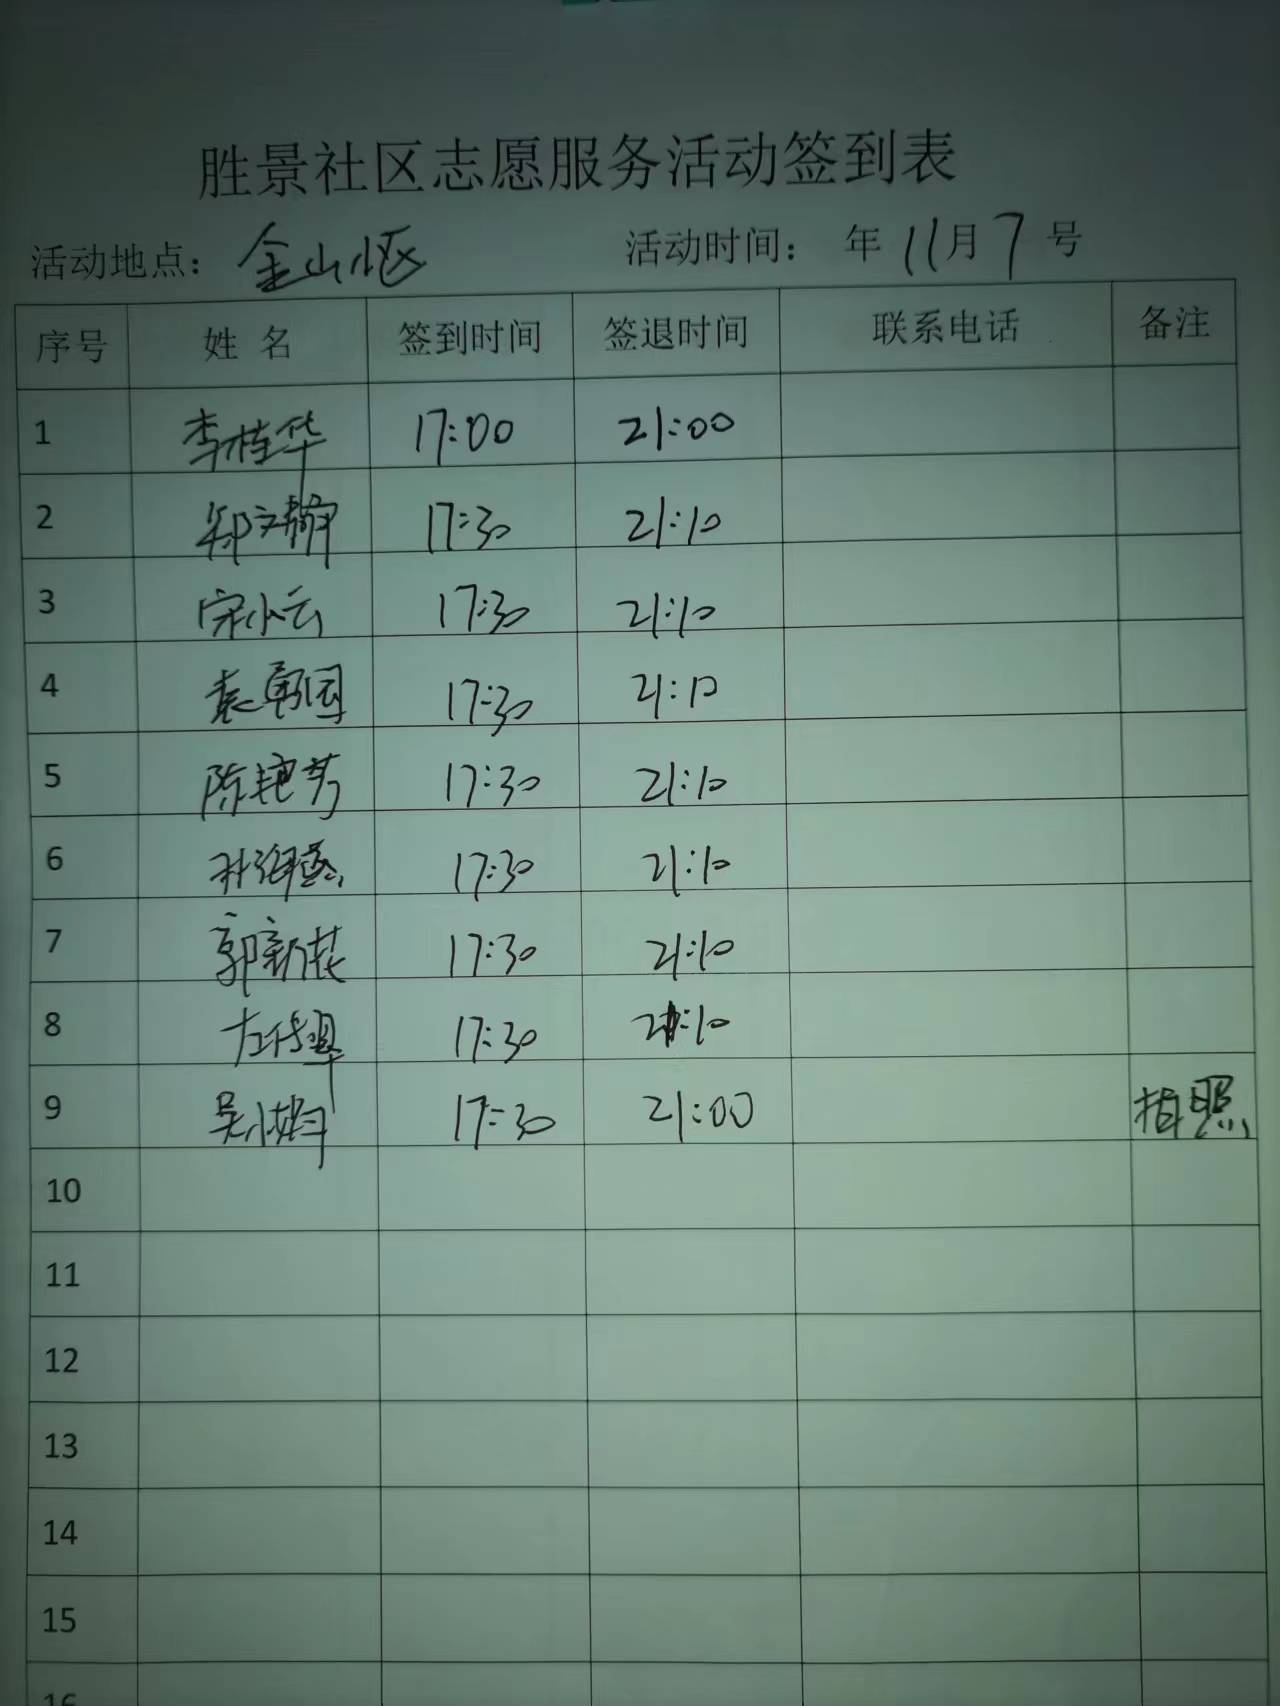 胜景社区志愿服务活动签到表
活动地点：金山小区 活动时间： 年 11月 7 号
序号 姓 名 签到时间 签退时间 联系电话 备注
1 李桂华 17:00 21:00
2 郑文静 17:30 21:10
3 宋小云 17:30 21:10
4 袁 17:30 21:10
5 陈艳芳 17:30 21:10
6 17:30 21:10
7 郭新花 17:30 21:10
8 17:30 21:10
9 吴小娟 17:30 21:00 拍照
10
11
12
13
14
15
16